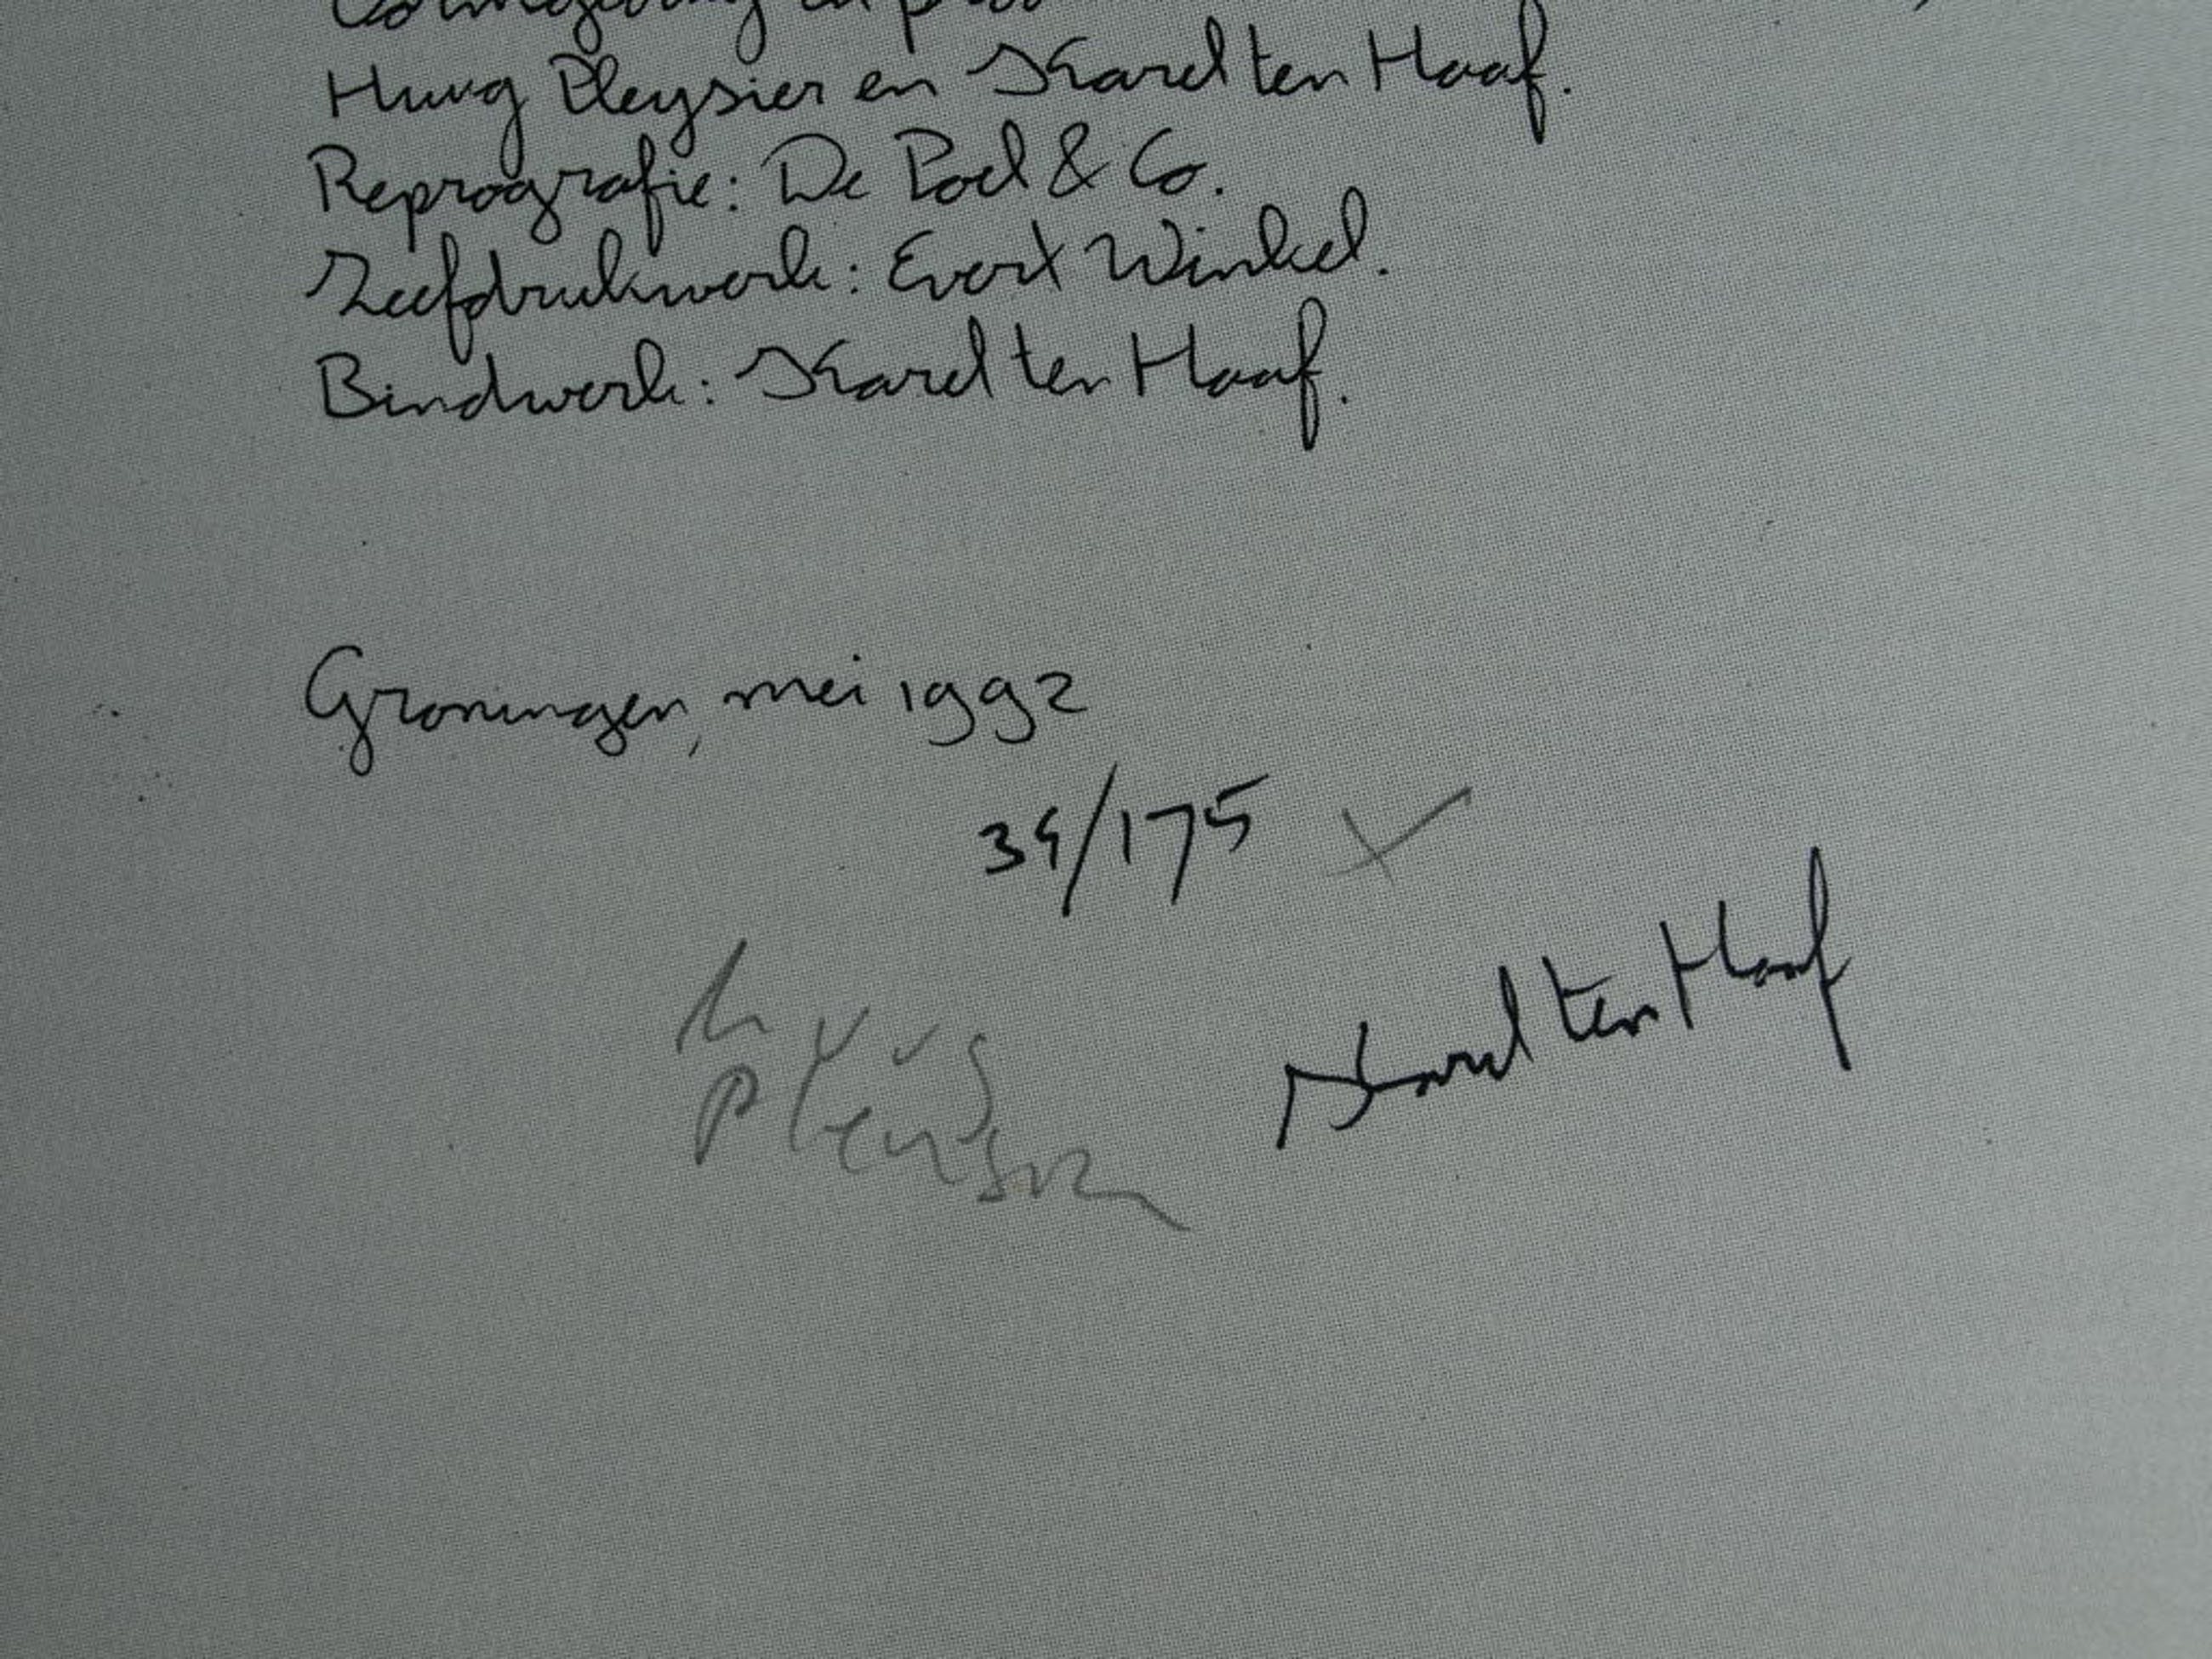 Vormgeving en
Huug Pleysier en Karel ten Haaf.
Reprografie: De Poel & Co.
Zeefdrukwerk: Evert Winkel.
Bindwerk: Karel ten Haaf.
Groningen, mei 1992
34/175
Karel ten Haaf